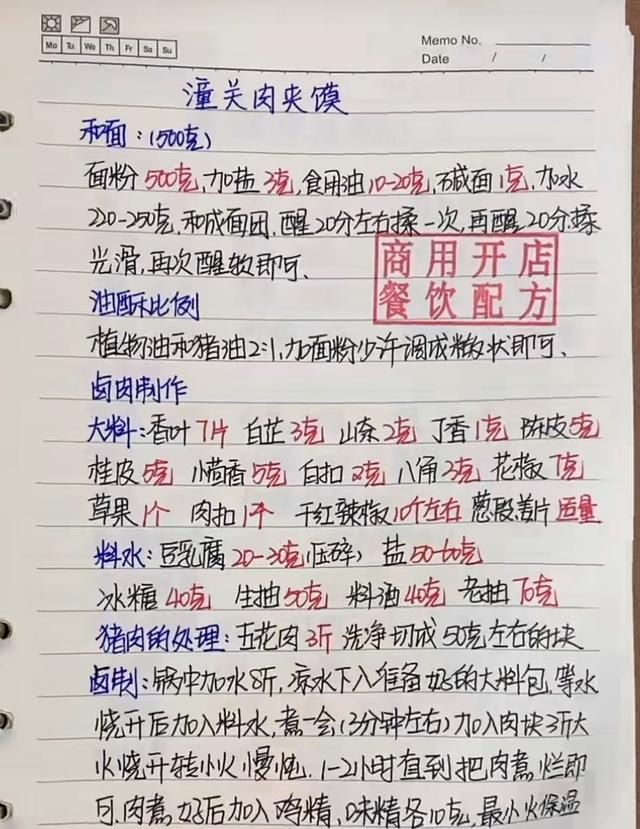 Mo Tu We Th Fr Sa Su
Memo No.
Date / /
潼关肉夹馍
和面：(500克)
面粉500克,加盐3克,食用油10-20克,碱面1克,加水
220-250克,和成面团,醒20分左右揉一次,再醒20分,揉
光滑,再次醒软即可、
商用开店
餐饮配方
油酥比例
植物油和猪油2:1,加面粉少许调成糊状即可、
卤肉制作
大料:香叶7片 白芷3克 山奈2克 丁香1克 陈皮5克
桂皮5克 小茴香5克 白扣2克 八角3克 花椒7克
草果1个 肉扣1个 干红辣椒10个左右 葱段姜片适量
料水：豆乳腐20-30克(压碎) 盐50-60克
冰糖40克 生抽50克 料酒40克 老抽70克
猪肉的处理：五花肉3斤 洗净切成50克左右的块
卤制：锅中加水8斤,凉水下入准备好的大料包,等水
烧开后加入料水,煮一会(3分钟左右)加入肉块3斤大
火烧开转小火慢炖.1-2小时直到把肉煮烂即
可.肉煮好后加入鸡精,味精各10克,最小火保温